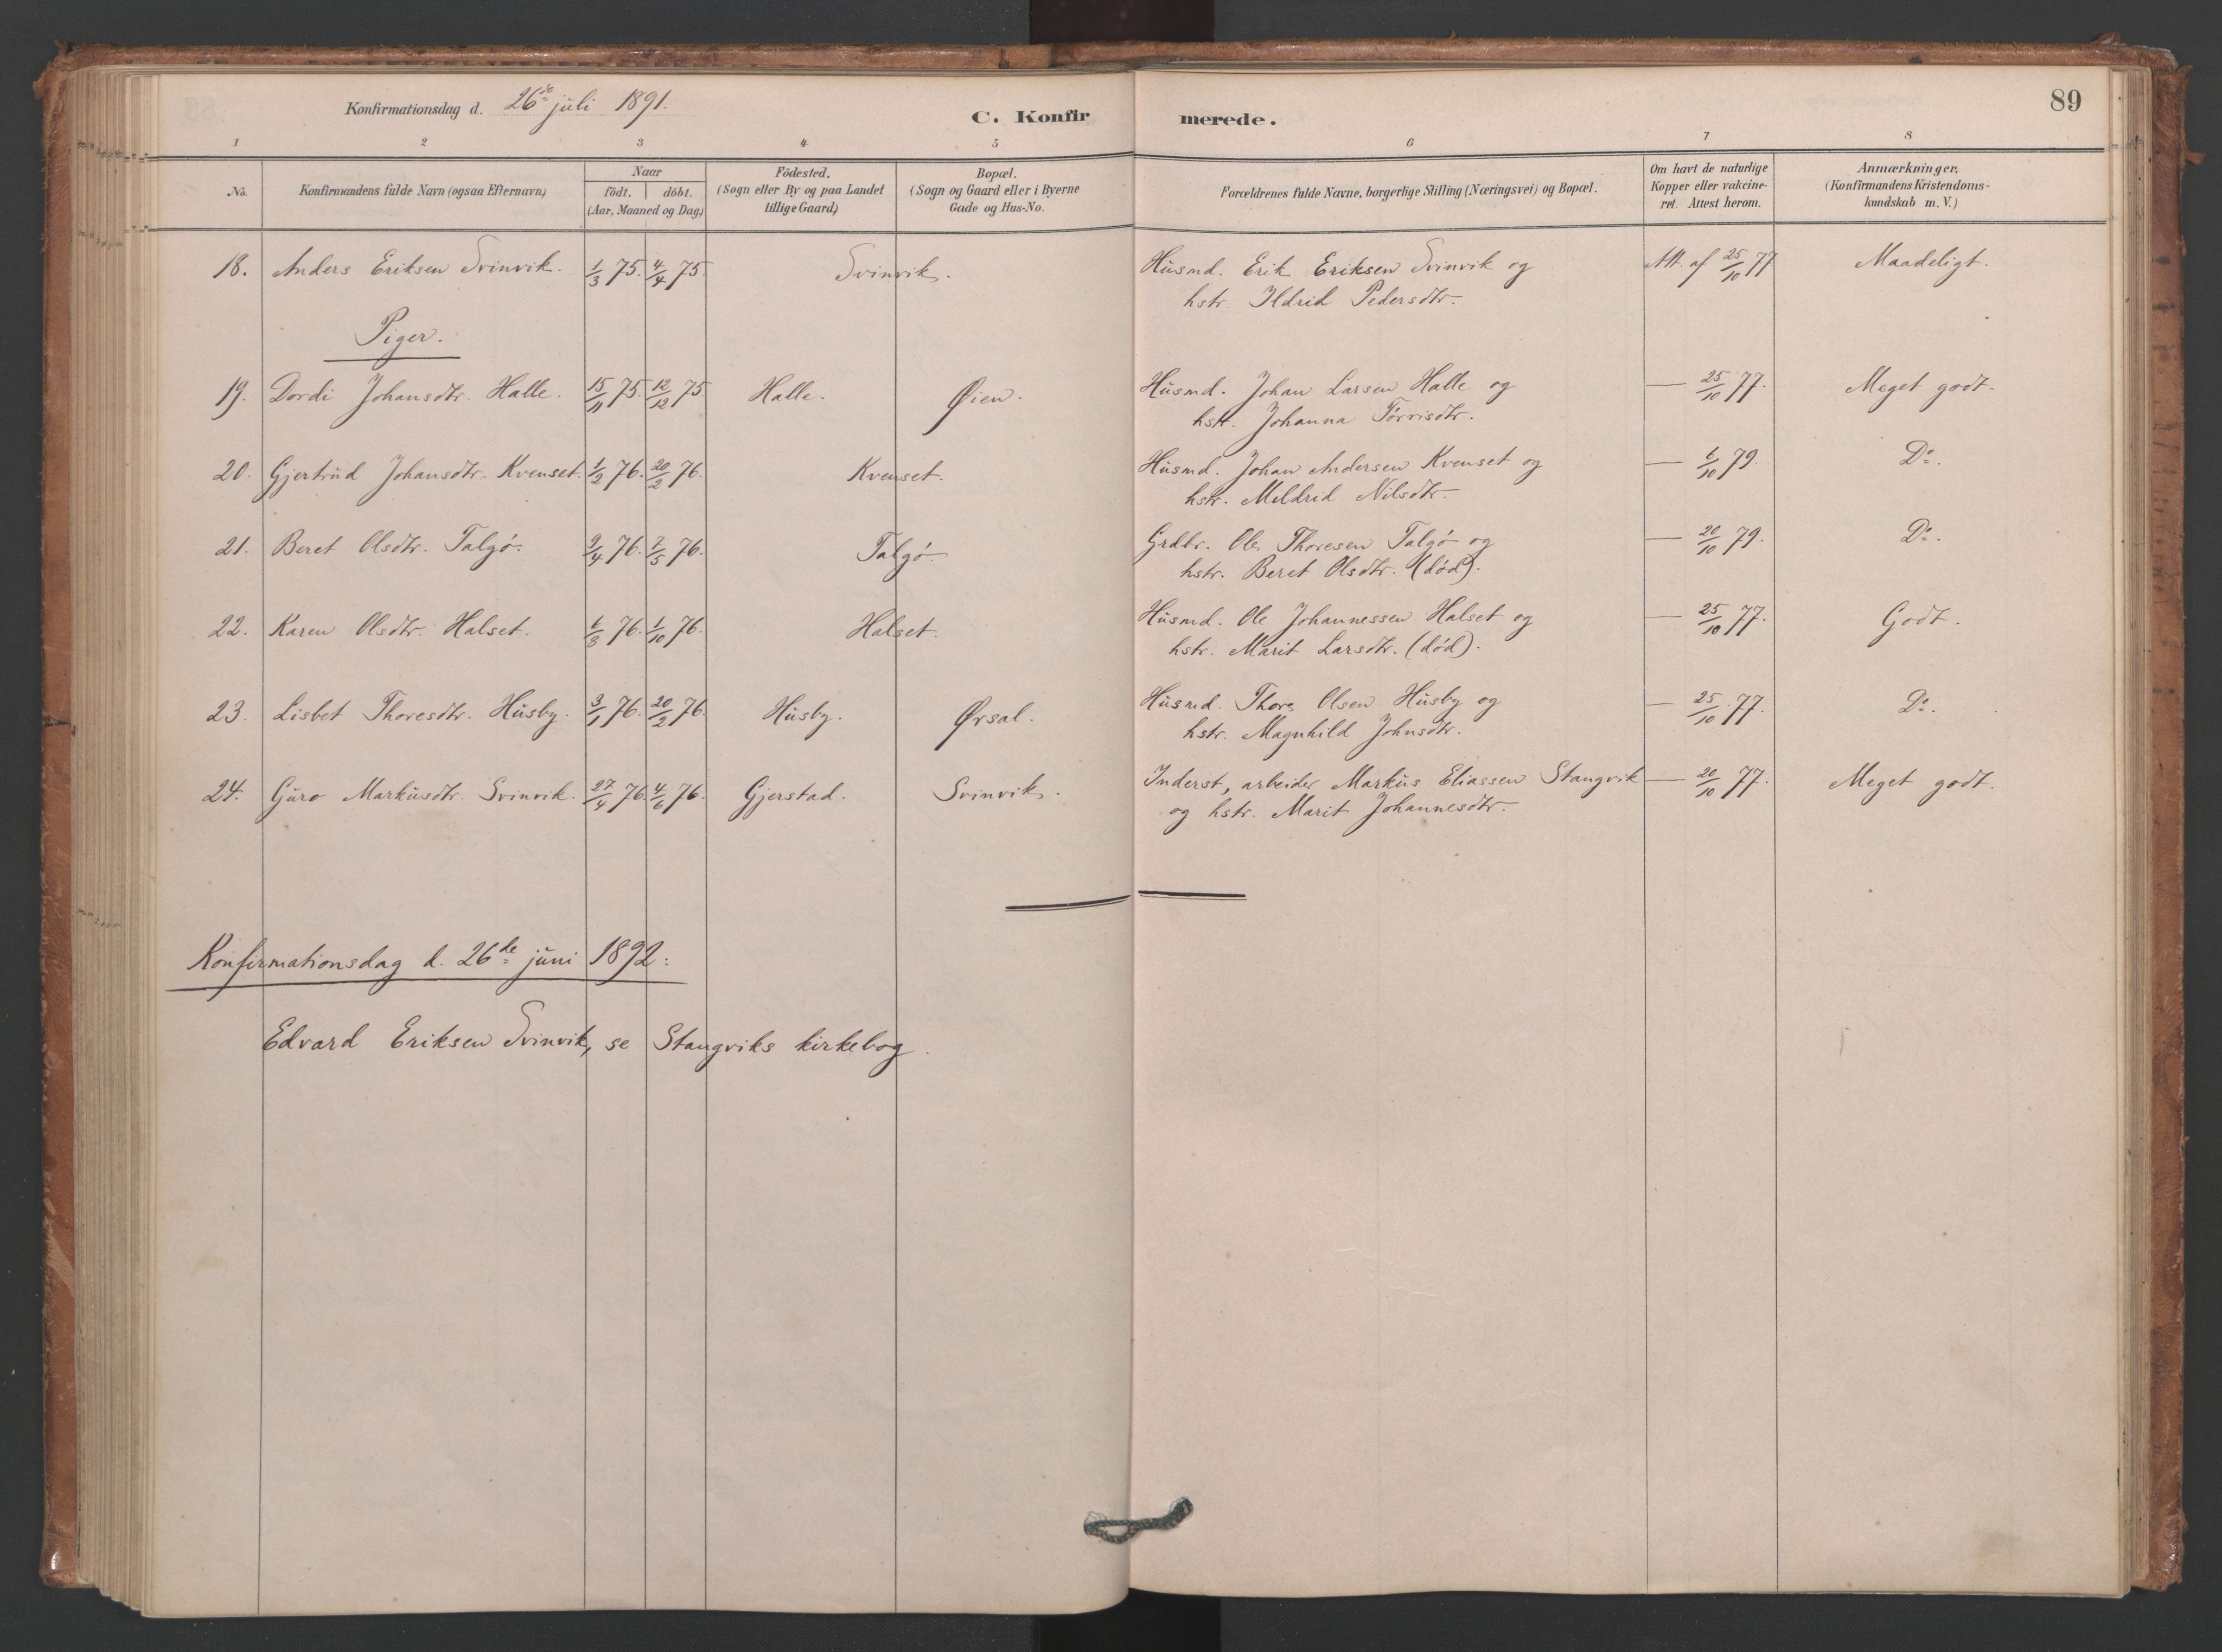 Konfirmationsdag d. 26de juli 1891.
C. Konfirmerede.
89
1 2 3 4 5 6 7 8
No. Konfirmandens fulde Navn (ogsaa Efternavn) Naar födt. döbt. (Aar, Maaned og Dag) Födested. (Sogn eller By og paa Landet tillige Gaard) Bopæl. (Sogn og Gaard eller i Byerne Gade og Hus-No. Forældrenes fulde Navne, borgerlige Stilling (Næringsvei) og Bopæl. Om havt de naturlige Kopper eller vakcineret. Attest herom. Anmærkninger. (Konfirmandens Kristendomskundskab m. V.)
18. Anders Eriksen Svinvik. 1/3 75. 4/4 75. Svinvik. Husmd. Erik Eriksen Svinvik og Att. af 25/10 77 Maadeligt.
hstr. Ildrid Pedersdtr.
Piger.
19. Dordi Johansdtr. Halle. 15/11 75. 12/12 75. Halle. Øien. Husmd. Johan Larsen Halle og — 25/10 77. Meget godt.
hstr. Johanna Torrisdtr.
20. Gjertrud Johansdtr. Kvenset. 1/2 76. 20/2 76. Kvenset. Husmd. Johan Andersen Kvenset og — 6/10 79. Do.
hstr. Meldrid Nilsdtr.
21. Beret Olsdtr. Talgø. 9/4 76. 7/5 76. Talgø Grdbr. Ole Thoresen Talgø og — 20/10 79. Do.
hstr. Beret Olsdtr. (død).
22. Karen Olsdtr. Halset. 6/8 76. 1/10 76. Halset. Husmd. Ole Johannessen Halset og — 25/10 77. Godt.
hstr. Marit Larsdtr. (død).
23. Lisbet Thoresdtr. Husby. 3/1 76. 20/2 76. Husby. Ørsal. Husmd. Thore Olsen Husby og — 25/10 77. Do.
hstr. Magnhild Johnsdtr.
24. Guro Markusdtr. Svinvik. 27/4 76. 4/6 76. Gjerstad. Svinvik. Inderst, arbeider Markus Eliassen Stangvik — 20/10 77. Meget godt.
og hstr. Marit Johannesdtr.
Konfirmationsdag d. 26de juni 1892:
Edvard Eriksen Svinvik, se Stangviks kirkebog.